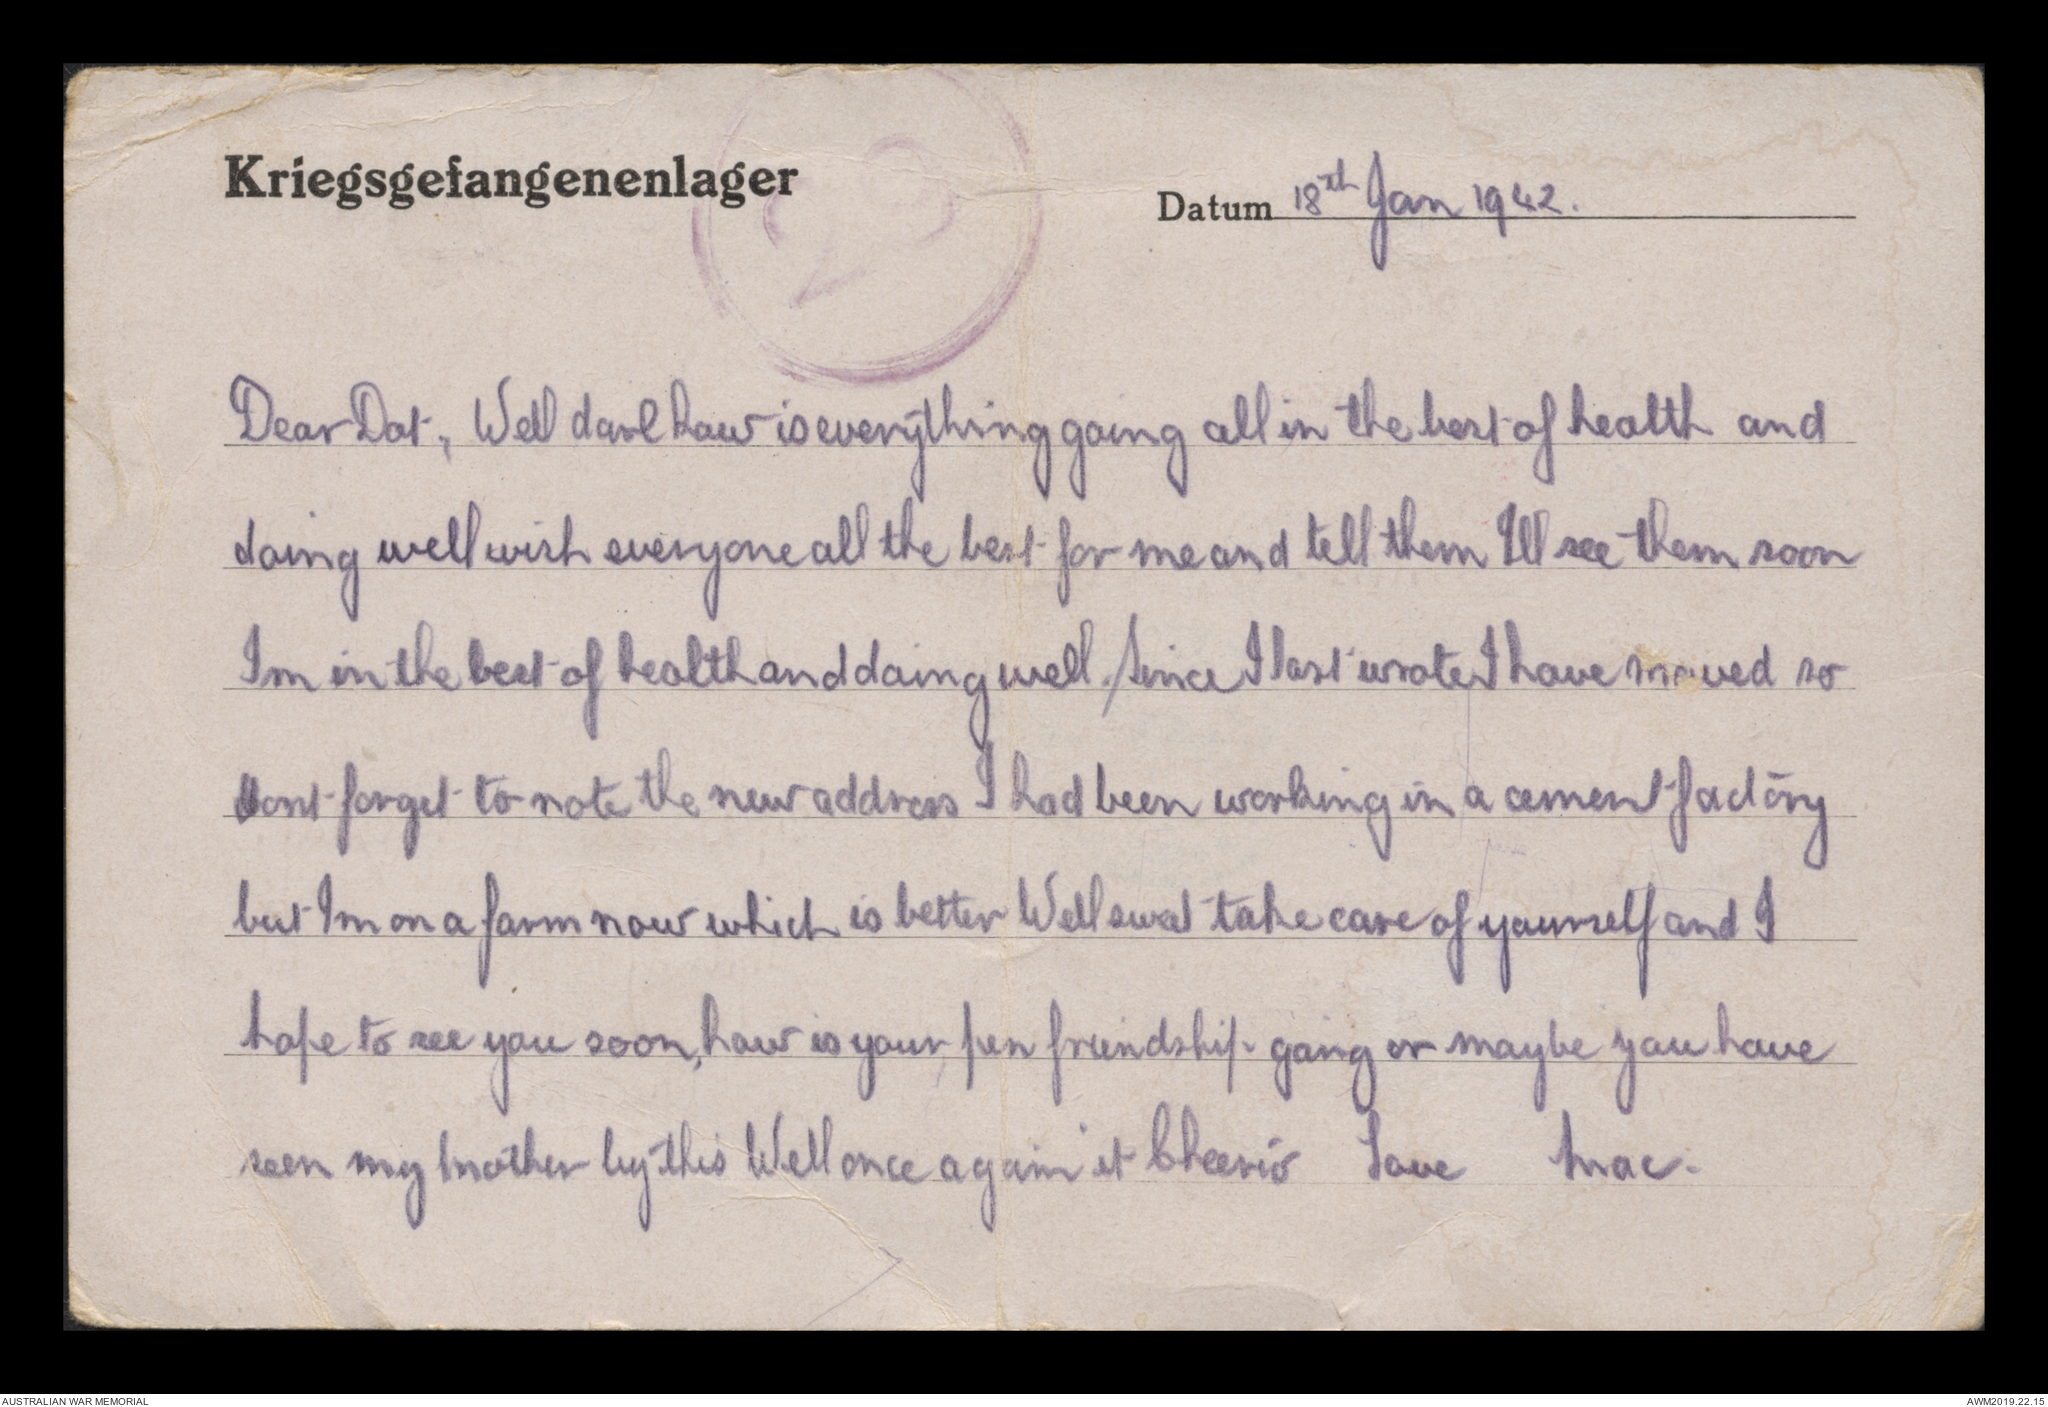 Kriegsgefangenenlager
Datum 18th Jan 1942.
Dear Dot, Well darl how is everything going all in the best of health and
doing well wish everyone all the best for me and tell them Ill see them soon
Im in the best of health and doing well. Since I last wrote I have moved so
dont forget to note the new address I had been working in a cement factory
but Im on a farm now which is better Well sweet take care of yourself and I
hope to see you soon, how is your pen friendship going or maybe you have
seen my mother by this Well once again it Cheerio Love Mac.
AUSTRALIAN WAR MEMORIAL
AWM2019.22.15